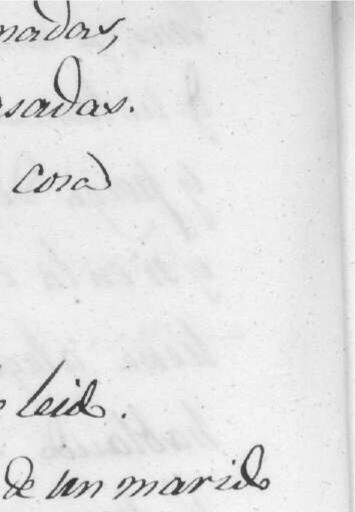 nadas,
sadas.
cosa
leido.
de un marido